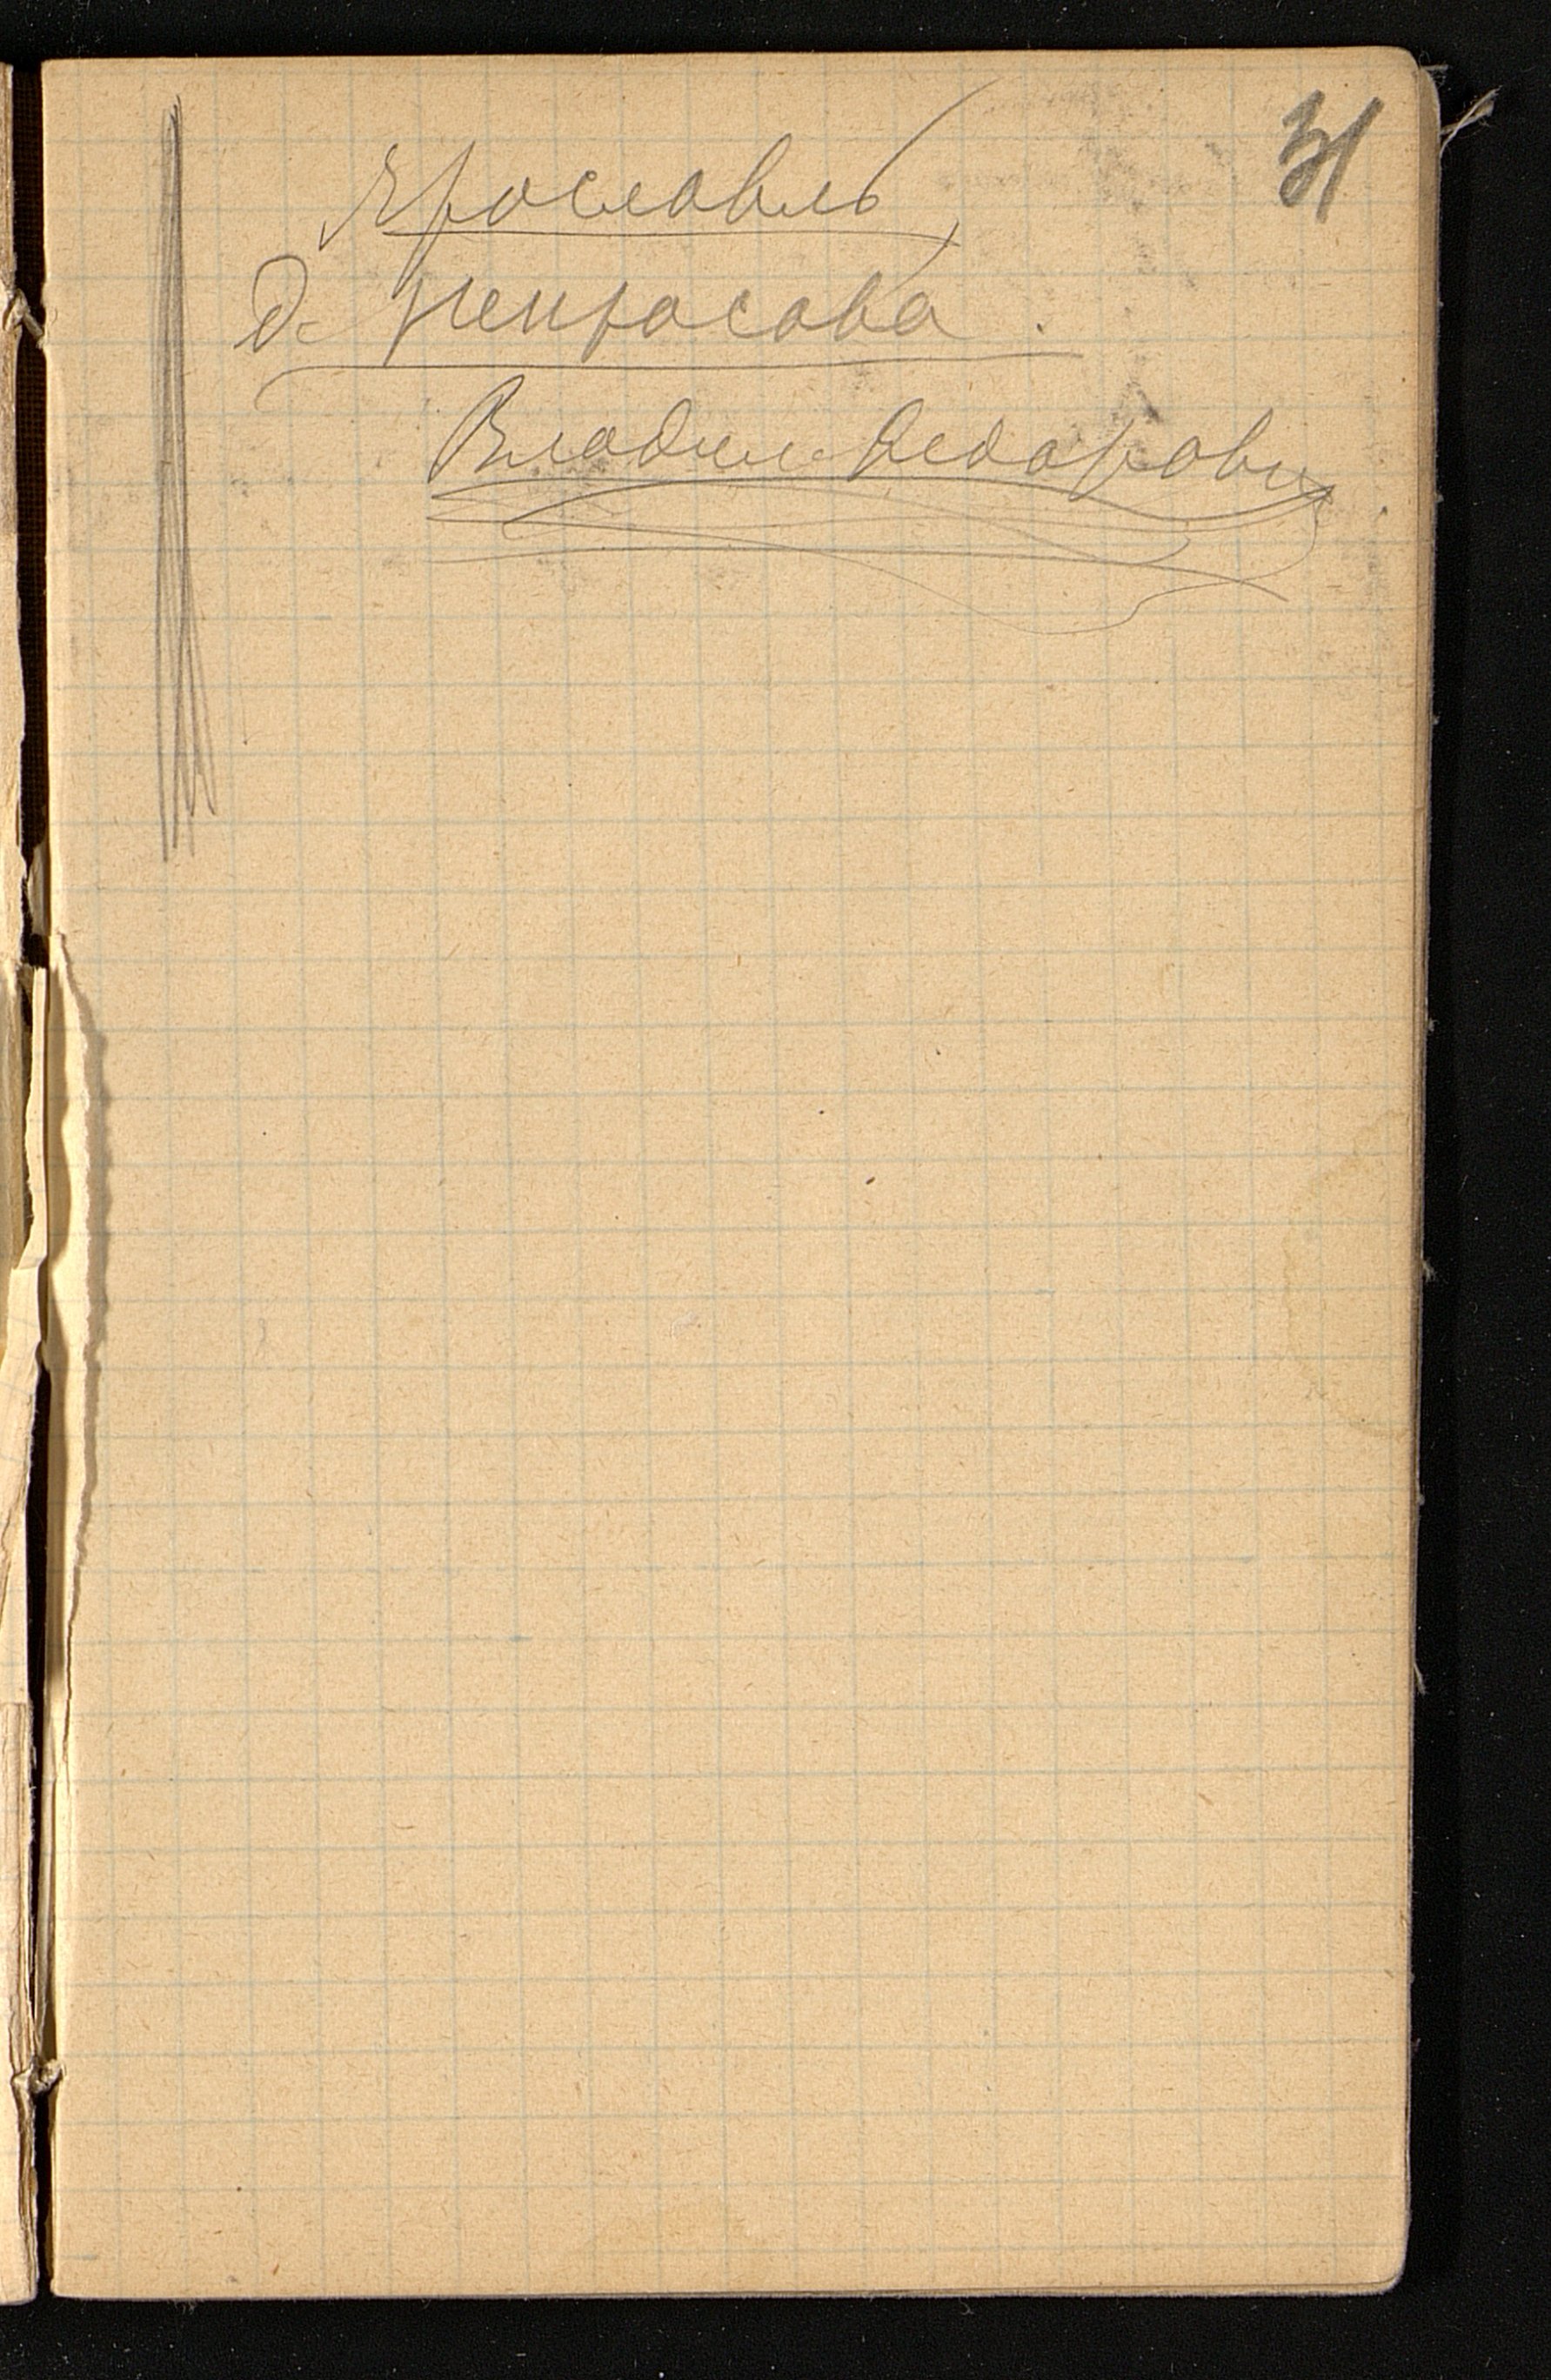 31
Ярославль
д. Некрасова.
Владим. Федорови